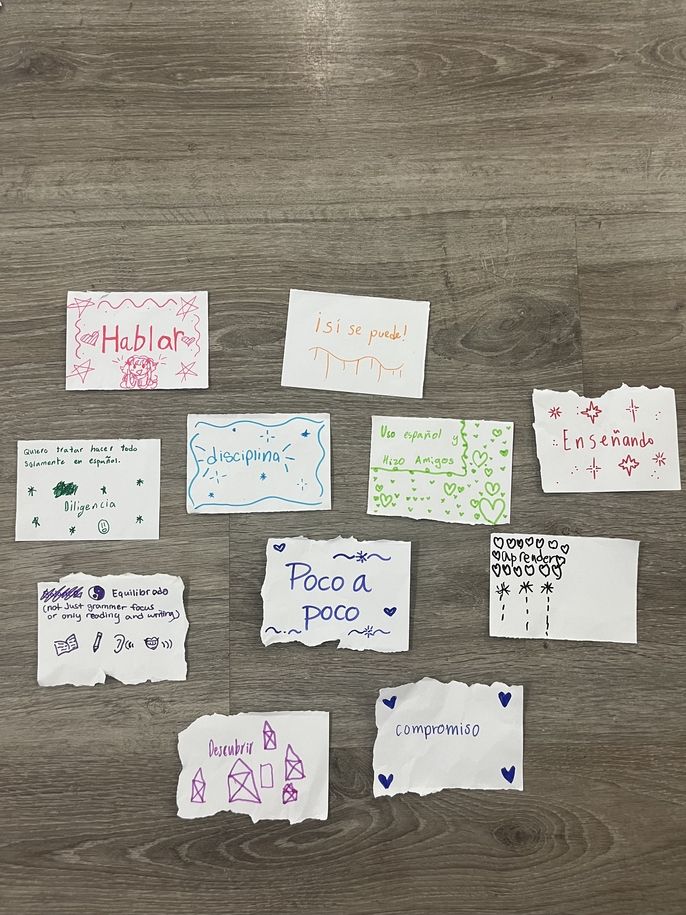 Hablar
¡sí se puede!
Enseñando
Quiero tratar hacer todo
solamente en español.
Diligencia
disciplina
Uso español y
Hizo Amigos
Equilibrado
(not Just grammer focus
or only reading and writing)
Poco a
poco
aprender
Descubrir
compromiso